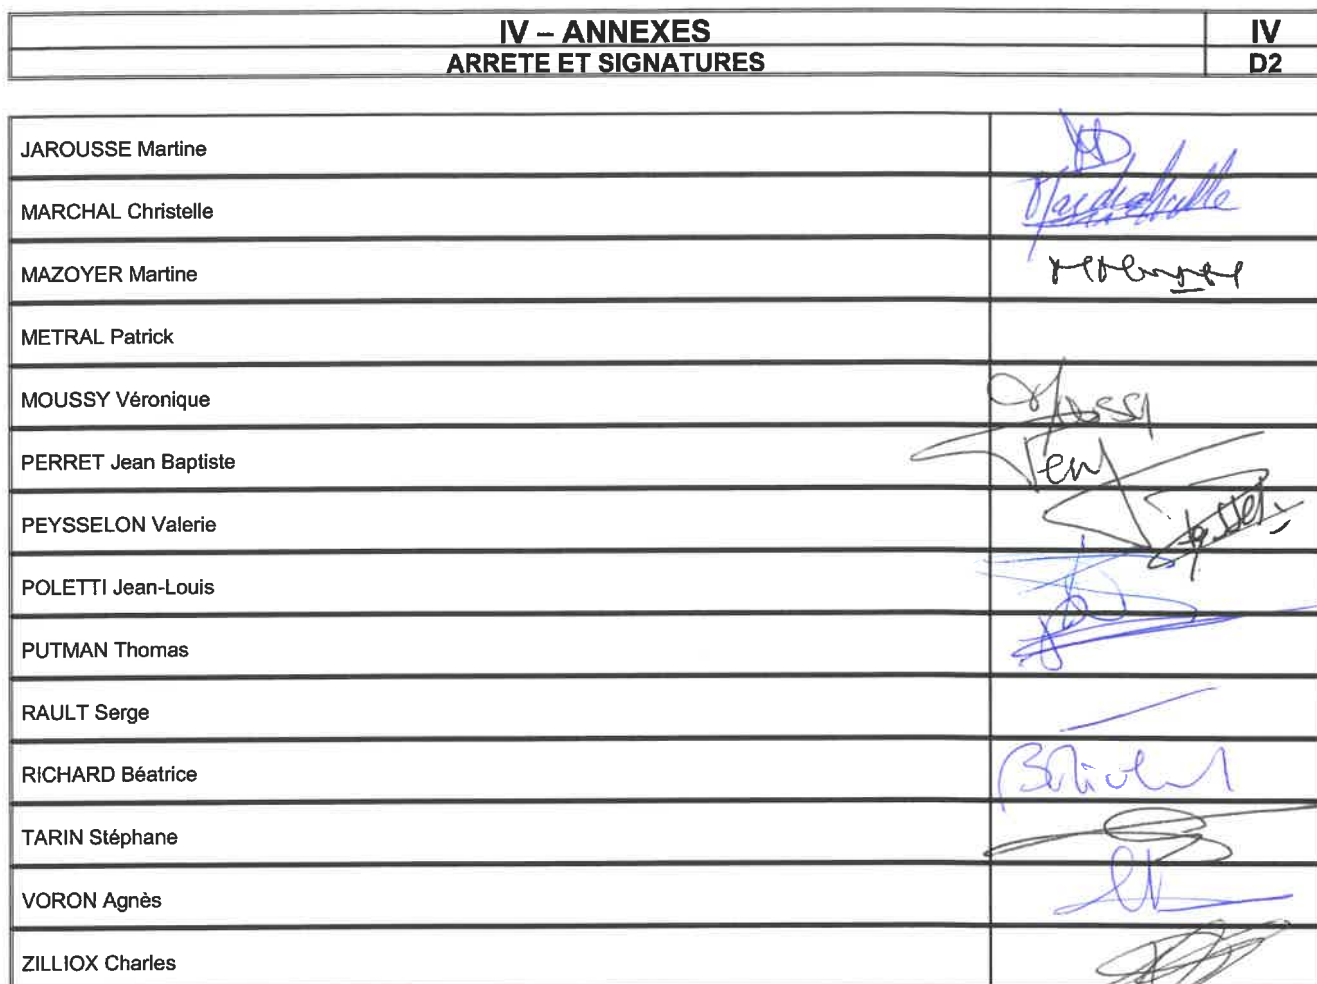 IV – ANNEXES
IV
ARRETE ET SIGNATURES
D2
JAROUSSE Martine
MARCHAL Christelle
MAZOYER Martine
METRAL Patrick
MOUSSY Véronique
PERRET Jean Baptiste
PEYSSELON Valerie
POLETTI Jean-Louis
PUTMAN Thomas
RAULT Serge
RICHARD Béatrice
TARIN Stéphane
VORON Agnès
ZILLIOX Charles